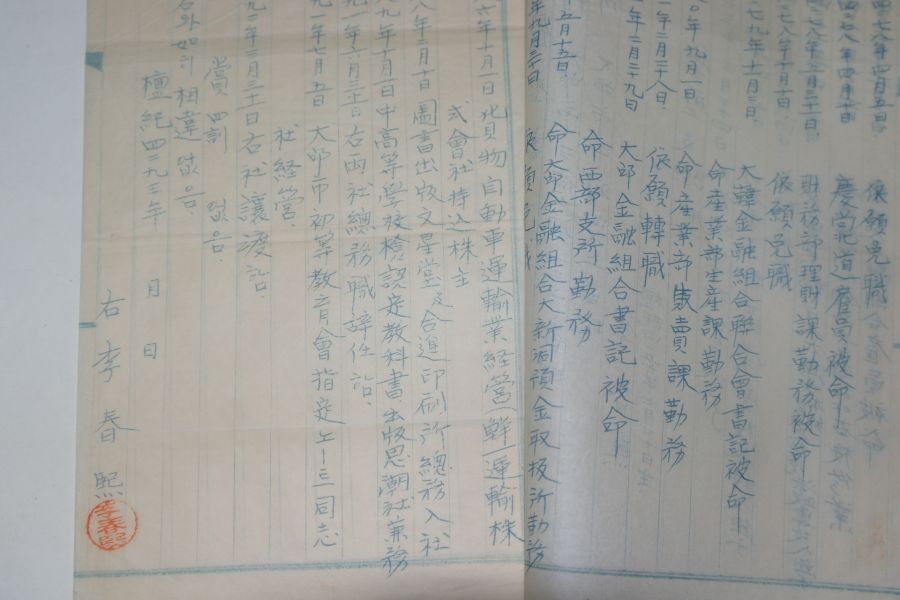 依願免職
慶尚北道雇員被命
財務部理財課勤務被命
依願免職
七九年十一月三日 大韓金融組合聯合會書記被命
命産業部生産課勤務
○年九月一日 命産業部販賣課勤務
一年二月二十八日 依願轉職
年三月二十九日 大邱金融組合書記被命
命西部支所勤務
五月十五日 命大邱金融組合大新洞預金取扱所勤務
年九月三十日 依願免職
六年十月一日 貨物自動車運輸業経営一鮮一運輸株
式會社持込株主
八年三月十日 圖書出版文星堂及合進印刷所總務入社
九年十月一日 中高等學校檢認定教科書出版思潮社兼務
九一年六月三十日 右両社總務職辞任함.
九一年七月五日 大邱市初等教育會指定노ー트同志
社経営.
九二年三月三十日 右社讓渡함.
賞罰 없음
右와如히 相違없음.
檀紀四二九三年 月 日
右 李春熙
李春熙